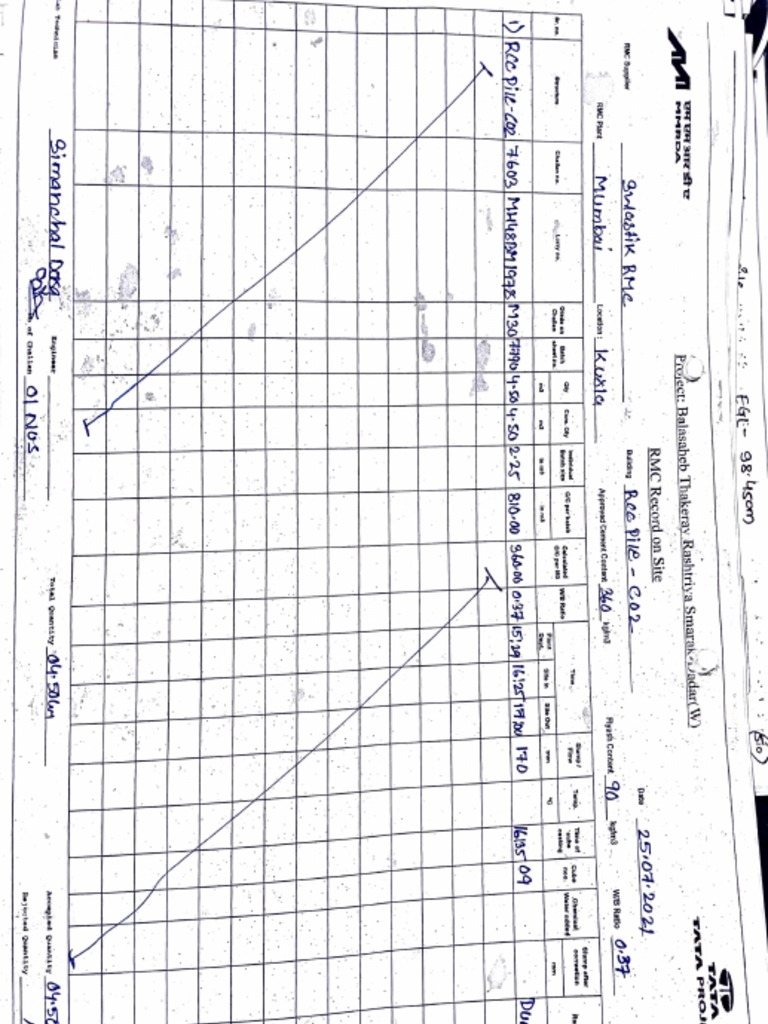 FGL - 98.450m
एम एम आर डी ए
MMRDA
TATA
TATA PROJ
Project: Balasaheb Thakeray Rashtriya Smarak, Dadar(W)
RMC Record on Site
RMC Supplier Swastik RMC Building RCC Pile - C02 Date 25.07.2021
RMC Plant Mumbai Location: Kurla Approved Cement Content 360 kg/m3 Flyash Content 90 kg/m3 W/B Ratio 0.37
Sr. no. Structure Challan no. Lorry no. Grade on Challan Batch sheet no. Qty m3 Cum. Qty m3 Individual Batch size in m3 C/C per batch in m3 Calculated C/C per M3 W/B Ratio Time Plant Dept. Site In Site Out Slump / Flow mm Temp. °C Time of cube casting Cube nos. Chemical Water added Slump after correction mm Re
1) RCC Pile-C02 7603 M30 7790 4.50 4.50 2.25 810.00 360.00 0.37 15:29 16:25 170 16:35 09
Simanchal Dora Engineer Total Quantity 04.50 Accepted Quantity 04.50
of Challan 01 NOS Rejected Quantity